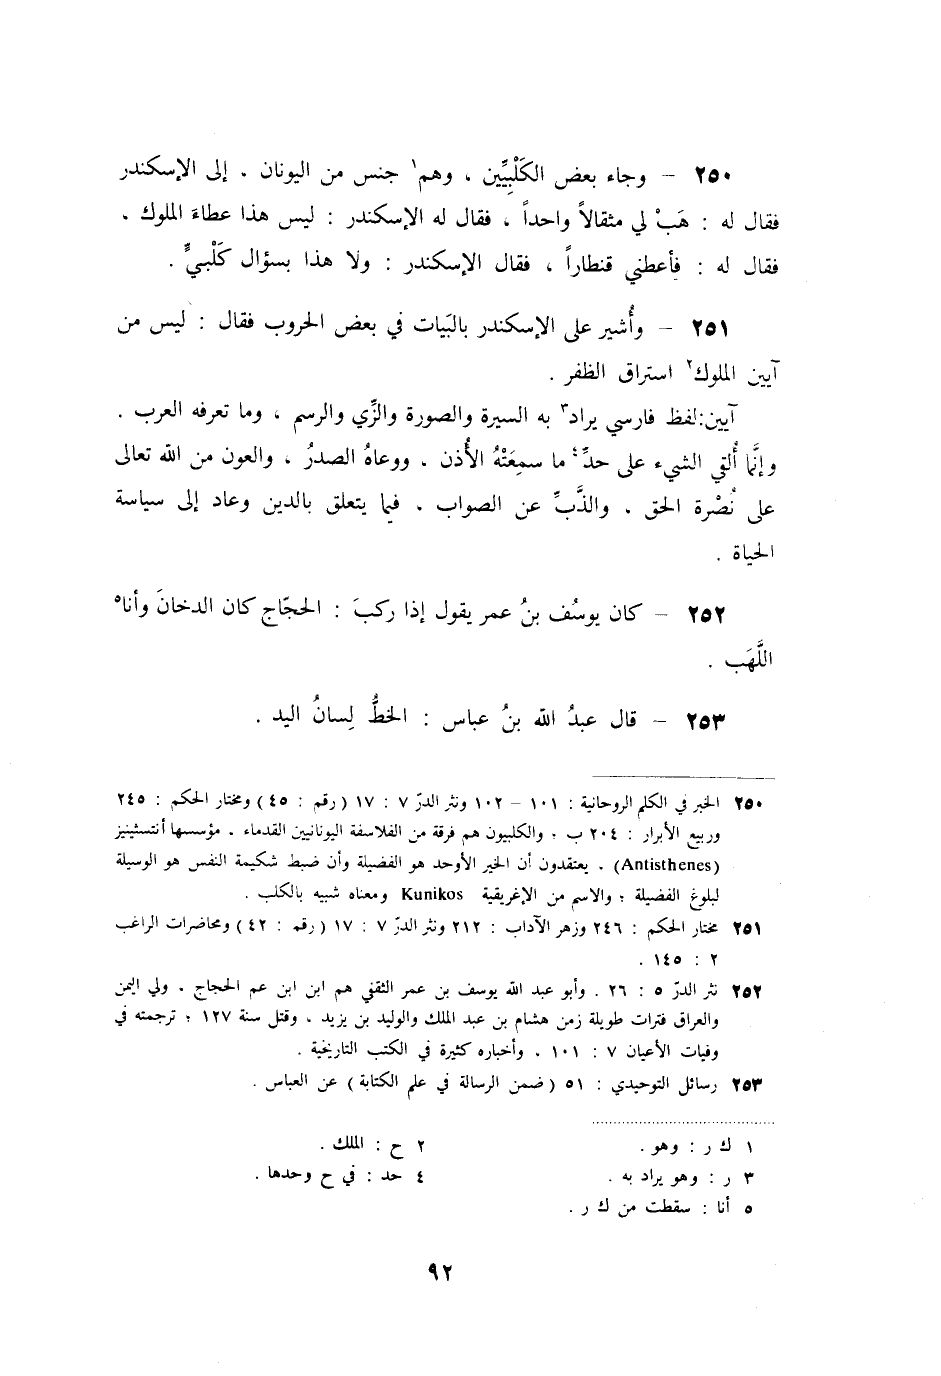 ٢٥٠ – وجاء بعض الكَلْبِيِّين ، وهم١ جنس من اليونان ، إلى الإسكندر
فقال له : هَبْ لي مثقالاً واحداً ، فقال له الإسكندر : ليس هذا عطاءَ الملوك ،
فقال له : فأعطني قنطاراً ، فقال الإسكندر : ولا هذا بسؤال كَلْبيٍّ .
٢٥١ – وأُشير على الإسكندر بالبَيات في بعض الحروب فقال : ليس من
آيين الملوك٢ استراق الظفر .
آيين:لفظ فارسي يراد٣ به السيرة والصورة والزِّي والرسم ، وما تعرفه العرب .
وإنَّما أُلقي الشيء على حدِّ٤ ما سمِعَتْهُ الأُذن ، ووعاهُ الصدرُ ، والعون من الله تعالى
على نُصْرة الحق ، والذَّبِّ عن الصواب ، فيما يتعلق بالدين وعاد إلى سياسة
الحياة .
٢٥٢ – كان يوسُف بنُ عمر يقول إذا ركبَ : الحجّاج كان الدخانَ وأنا٥
اللَّهَب .
٢٥٣ – قال عبدُ الله بنُ عباس : الخطُّ لِسانُ اليد .
٢٥٠ الخبر في الكلم الروحانية : ١٠١ – ١٠٢ ونثر الدرّ ٧ : ١٧ (رقم : ٤٥) ومختار الحكم : ٢٤٥
وربيع الأبرار : ٢٠٤ ب ؛ والكلبيون هم فرقة من الفلاسفة اليونانيين القدماء ، مؤسسها أنتسثينيز
(Antisthenes) ، يعتقدون أن الخير الأوحد هو الفضيلة وأن ضبط شكيمة النفس هو الوسيلة
لبلوغ الفضيلة ؛ والاسم من الإغريقية Kunikos ومعناه شبيه بالكلب .
٢٥١ مختار الحكم : ٢٤٦ وزهر الآداب : ٢١٢ ونثر الدرّ ٧ : ١٧ (رقم : ٤٢) ومحاضرات الراغب
٢ : ١٤٥ .
٢٥٢ نثر الدرّ ٥ : ٢٦ . وأبو عبد الله يوسف بن عمر الثقفي هم ابن ابن عم الحجاج ، ولي اليمن
والعراق فترات طويلة زمن هشام بن عبد الملك والوليد بن يزيد ، وقتل سنة ١٢٧ ؛ ترجمته في
وفيات الأعيان ٧ : ١٠١ ، وأخباره كثيرة في الكتب التاريخية .
٢٥٣ رسائل التوحيدي : ٥١ (ضمن الرسالة في علم الكتابة) عن العباس .
١ ك ر : وهو . ٢ ح : الملك .
٣ ر : وهو يراد به . ٤ حد : في ح وحدها .
٥ أنا : سقطت من ك ر .
٩٢